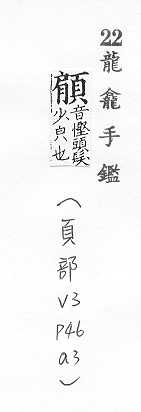 22龍龕手鑑
音慳頭髮
少皃也
(頁部V3P46a3)